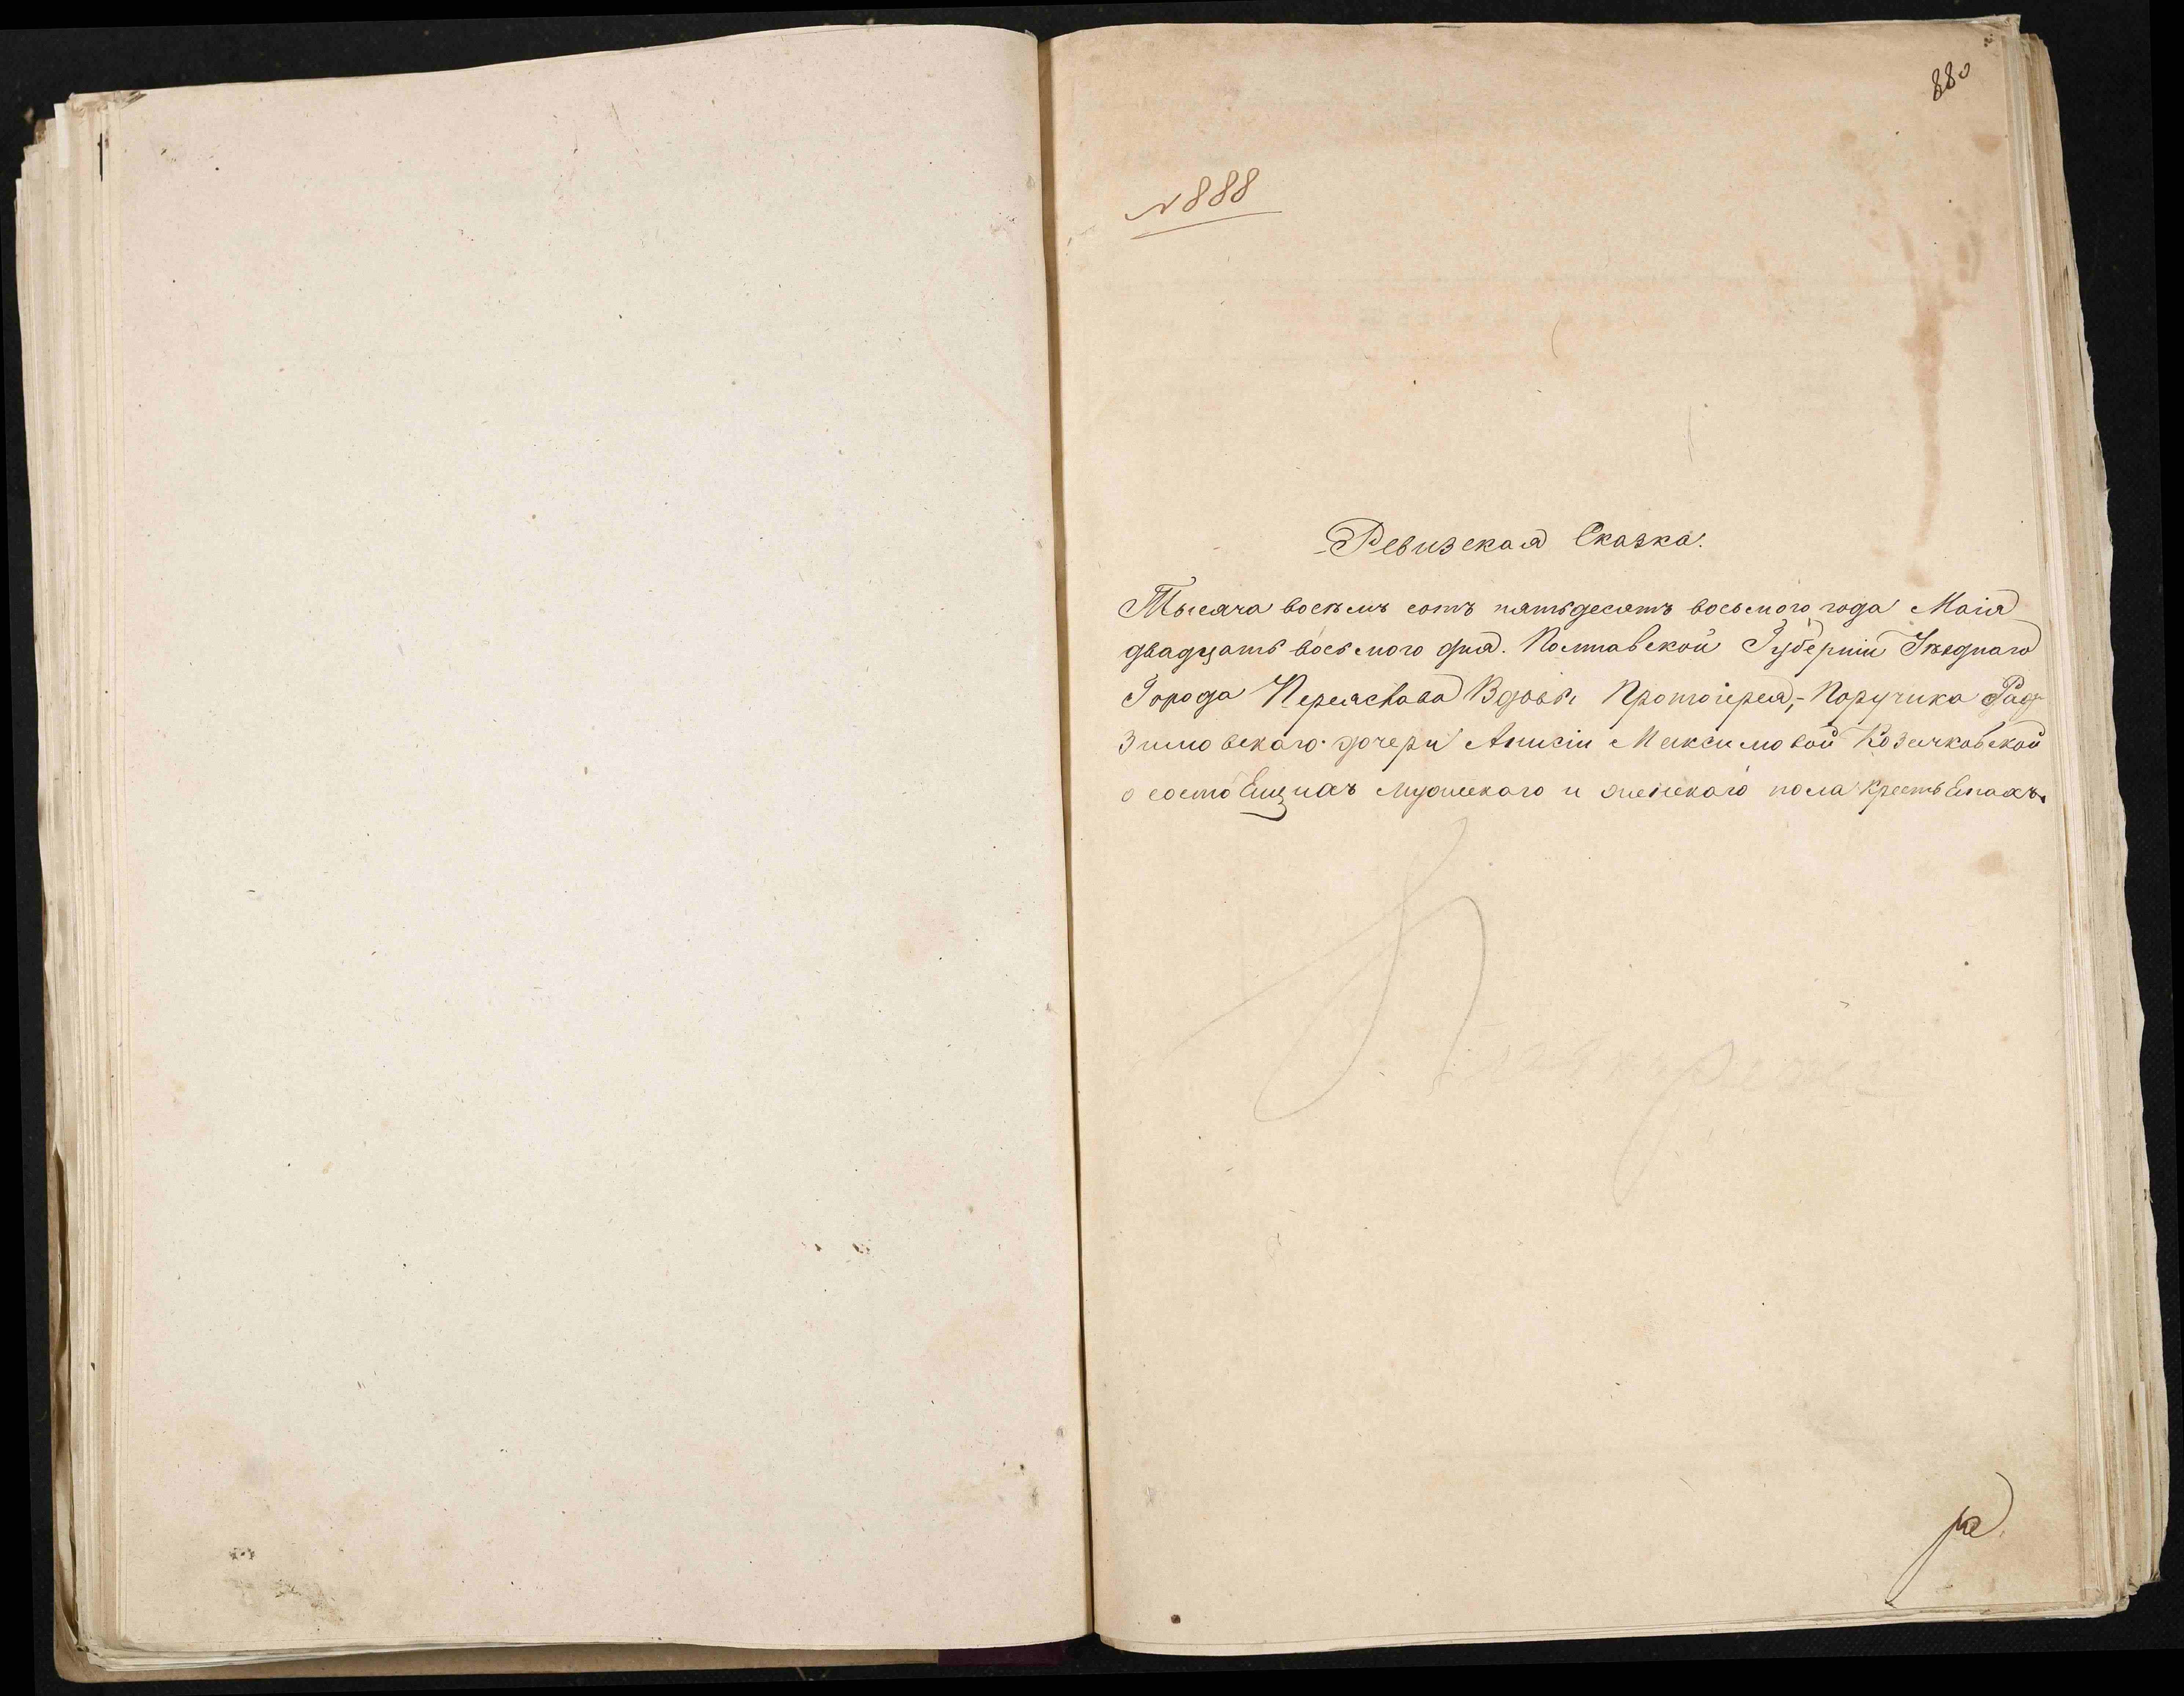 880
№ 888
Ревизская Сказка.
Тысяча восемь сотъ пятьдесятъ восьмого года Маія
двадцать восьмого дня. Полтавской Губерніи Уѣзднаго
Города Переяслава Вдовы Протоіерея, - Поручика Рад-
зимовскаго дочери Анисіи Максимовой Козачковской
о состоящихъ мужескаго и женскаго пола крестьянахъ.